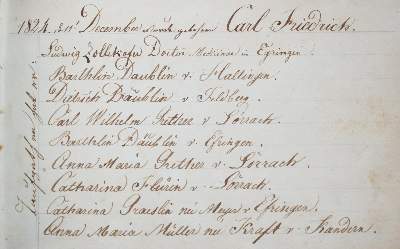 1824. d. 11t December wurde geboren Carl Friedrich.
Ludwig Zollikofer Doctor Medicinae in Efringen.
Barthlin Däublin v. Haltingen.
Dietrich Däublin v. Feldberg.
Carl Wilhelm Grether v Lörrach.
Barthlin Däublin v Efringen
Anna Maria Grether v Lörrach.
Catharina Flurin v Lörrach.
Catharina Graeslin neé Meyer v Efringen.
Anna Maria Müller neé Kraft v Kandern.